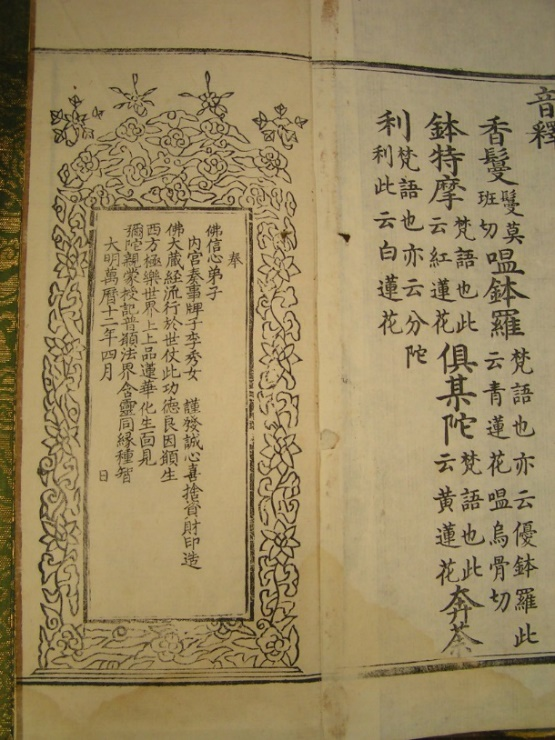 音釋
香鬘鬘莫班切嗢鉢羅梵語也亦云優鉢羅此云青蓮花嗢烏骨切
鉢特摩梵語也此云紅蓮花俱某陀梵語也此云黃蓮花奔荼
利梵語也亦云分陀利此云白蓮花
奉
佛信心弟子
內宮奏事牌子李秀女 謹發誠心喜捨資財印造
佛大藏經流行於世仗此功德良因願生
西方極樂世界上上品蓮華化生面見
彌陀親蒙授記普願法界含靈同緣種智
大明萬曆十二年四月 日